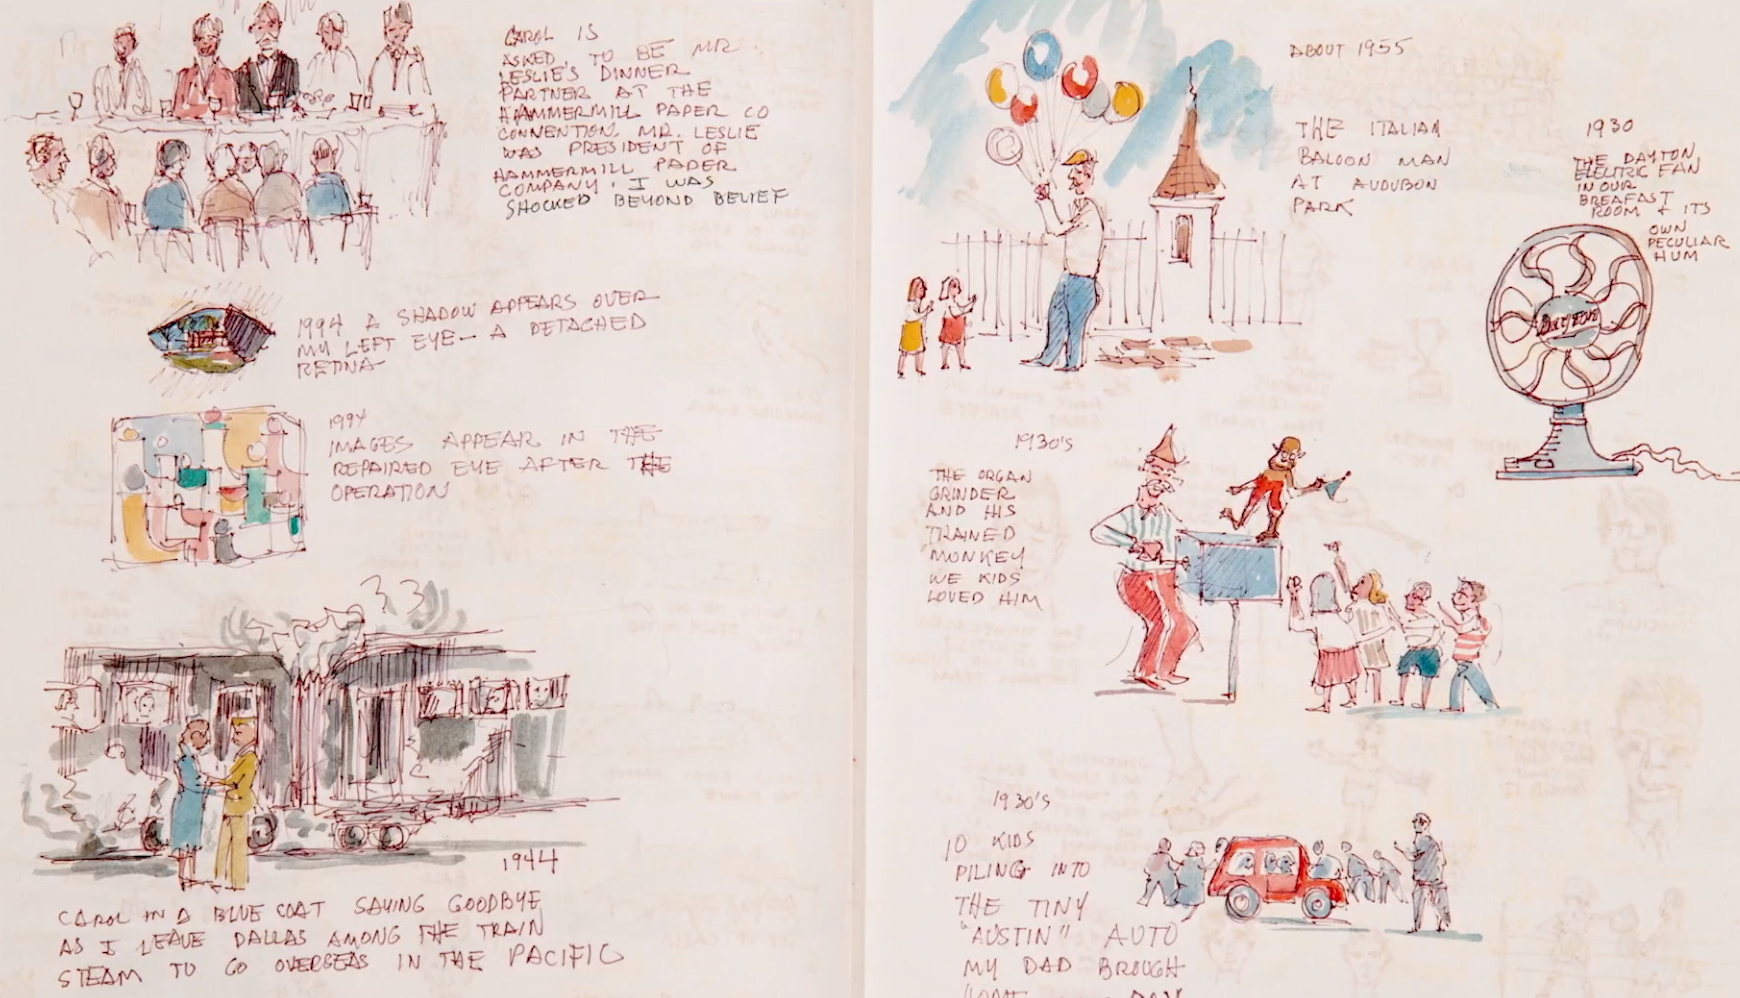 CAROL IS
ASKED TO BE MR
LESLIE'S DINNER
PARTNER AT THE
HAMMERMILL PAPER CO
CONVENTION. MR. LESLIE
WAS PRESIDENT OF
HAMMERMILL PAPER
COMPANY. I WAS
SHOCKED BEYOND BELIEF
1994 A SHADOW APPEARS OVER
MY LEFT EYE - A DETACHED
RETINA
1994
IMAGES APPEAR IN THE
REPAIRED EYE AFTER THE
OPERATION
1944
CAROL IN A BLUE COAT SAYING GOODBYE
AS I LEAVE DALLAS AMONG THE TRAIN
STEAM TO GO OVERSEAS IN THE PACIFIC
ABOUT 1955
THE ITALIAN
BALOON MAN
AT AUDUBON
PARK
1930
THE DAYTON
ELECTRIC FAN
IN OUR
BREAFAST
ROOM + ITS
OWN
PECULIAR
HUM
Dayton
1930'S
THE ORGAN
GRINDER
AND HIS
TRAINED
MONKEY
WE KIDS
LOVED HIM
1930'S
10 KIDS
PILING INTO
THE TINY
"AUSTIN" AUTO
MY DAD BROUGH
HOME DAY